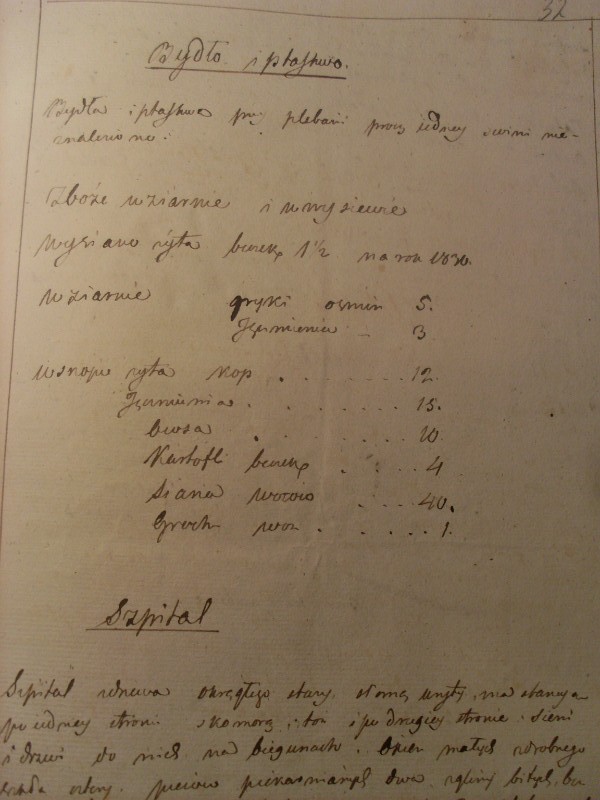 32
Bydło i ptastwo.
Bydła i ptastwa przy plebanii procz iedney swini nie-
znaleziono.
Zboże w ziarnie i w wysiewie
Wysiano żyta beczek 1½ na rok 1830.
W ziarnie gryki osmin 5.
Jęczmienia — 3
W snopie żyta kop . . . . . . . 12.
Jęczmienia . . . . . . . 15.
Owsa . . . . . . 10
Kartofli beczek . . . . 4
Siana wozow . . . . 40.
Groch woz . . . . . 1.
Szpital
Szpital z drzewa okrągłego stary słomą kryty, ma stancya
po iedney stronie z komorą, i po drugiey stronie sieni
i drzwi do nich na biegunach. Okien małych z drobnego
szkła cztery, piecow piekarnianych dwa z gliny bitych